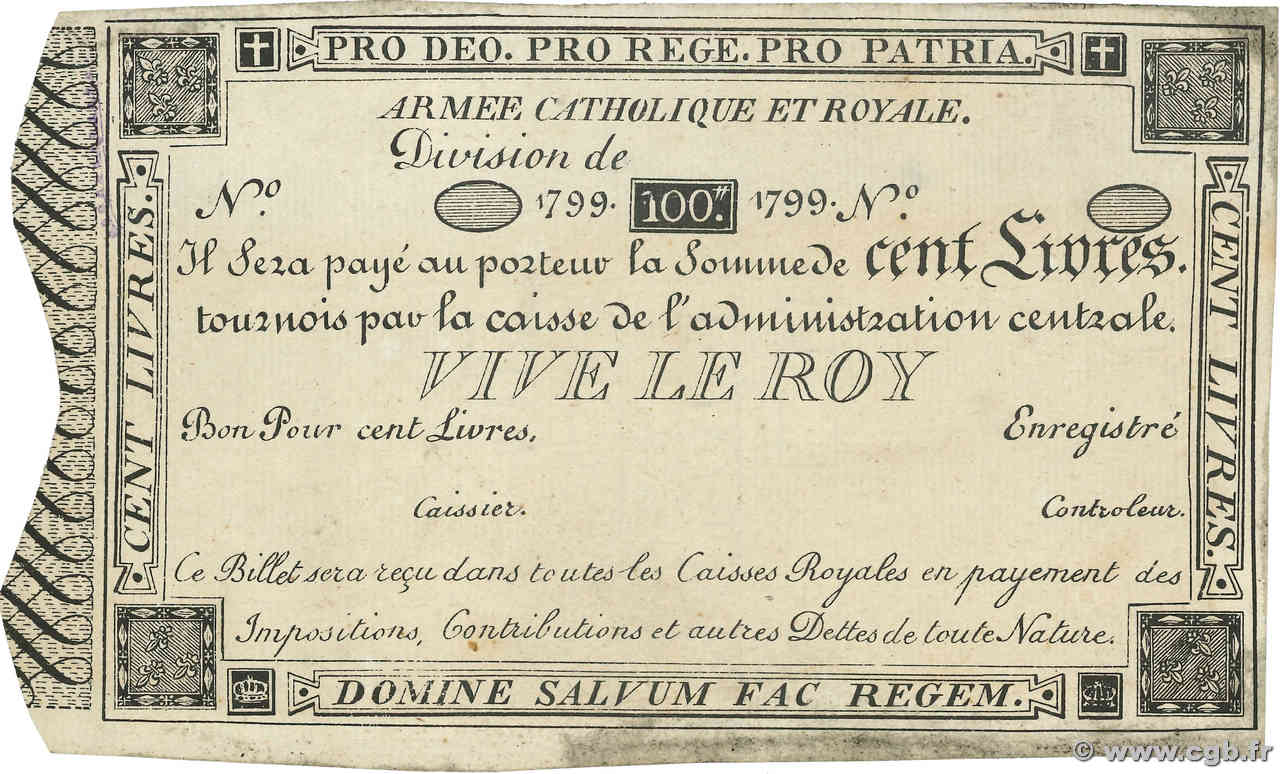 PRO DEO. PRO REGE. PRO PATRIA.
ARMEE CATHOLIQUE ET ROYALE.
Division de
N.º 1799. 100.tt 1799. N.º
Il Sera payé au porteur la Somme de cent Livres.
tournois par la caisse de l'administration centrale.
VIVE LE ROY
Bon Pour cent Livres. Enregistré
Caissier. Controleur.
Ce Billet sera reçu dans toutes les Caisses Royales en payement des
Impositions, Contributions et autres Dettes de toute Nature.
DOMINE SALVUM FAC REGEM.
CENT LIVRES.
CENT LIVRES.
© www.cgb.fr